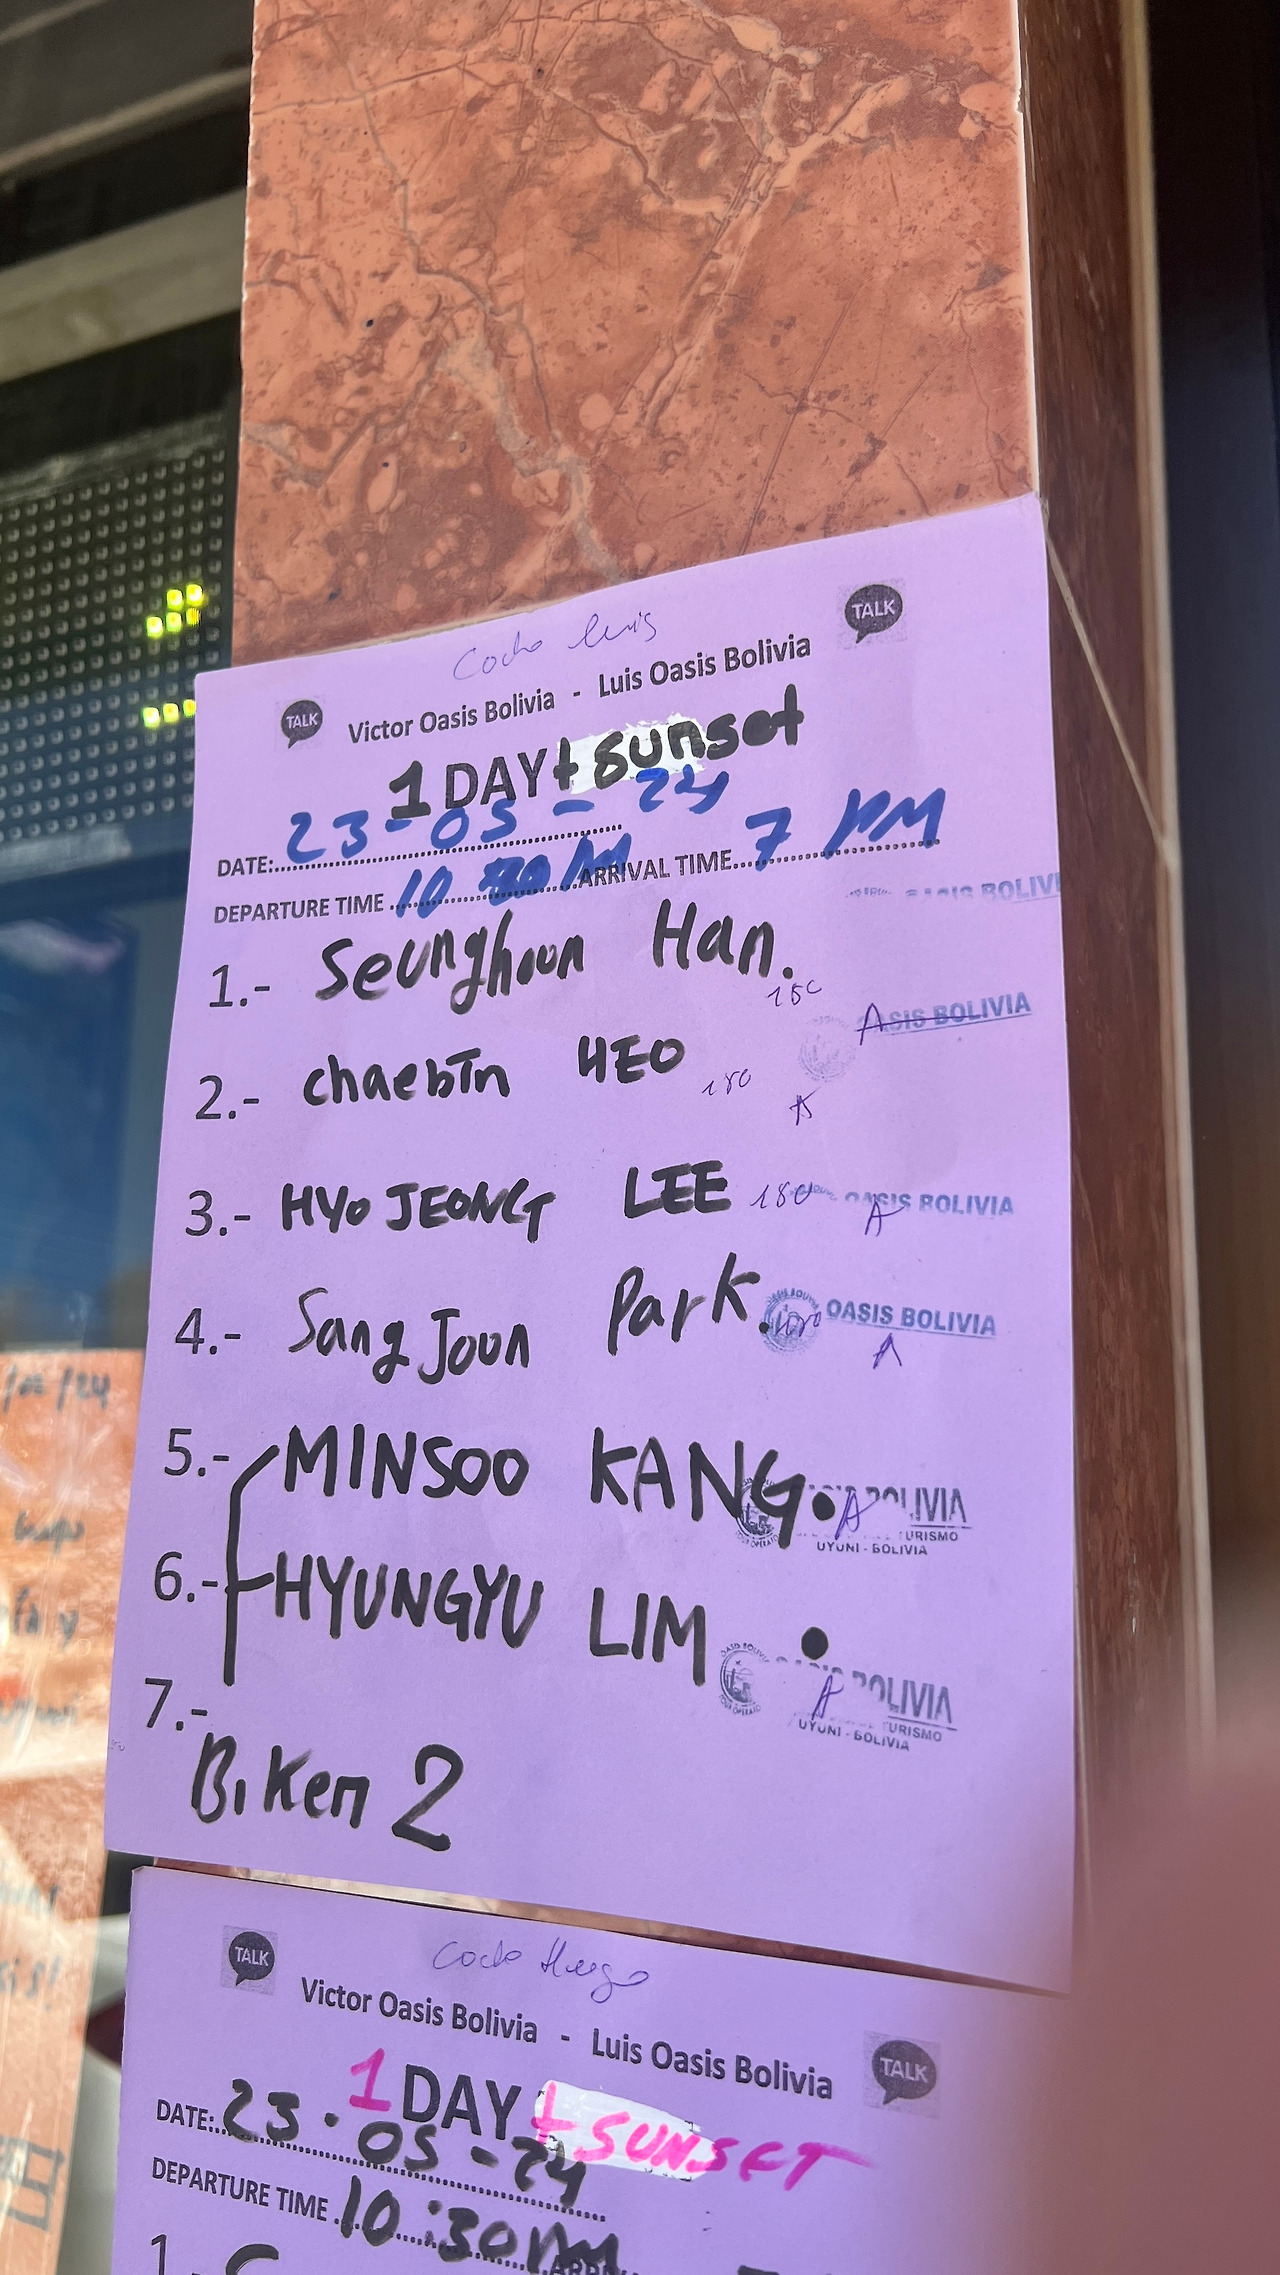 Cocho Luis
TALK
TALK
Victor Oasis Bolivia - Luis Oasis Bolivia
1 DAY + sunset
DATE: 23-05-24
DEPARTURE TIME 10 ARRIVAL TIME 7 PM
OASIS BOLIVI
1.- Seunghoon Han.
OASIS BOLIVIA
2.- chaebin HEO 180
3.- HYOJEONG LEE 180 OASIS BOLIVIA
A
4.- Sang Joon Park. OASIS BOLIVIA
A
5.- MINSOO KANG. A BOLIVIA
TURISMO
UYUNI - BOLIVIA
6.- HYUNGYU LIM
OASIS BOLIVIA
A
TURISMO
UYUNI - BOLIVIA
7.-
Biken 2
TALK
Cocho Hugo
Victor Oasis Bolivia - Luis Oasis Bolivia
TALK
1 DAY + SUNSET
DATE: 23.05-24
DEPARTURE TIME 10:30AM
1.
/24